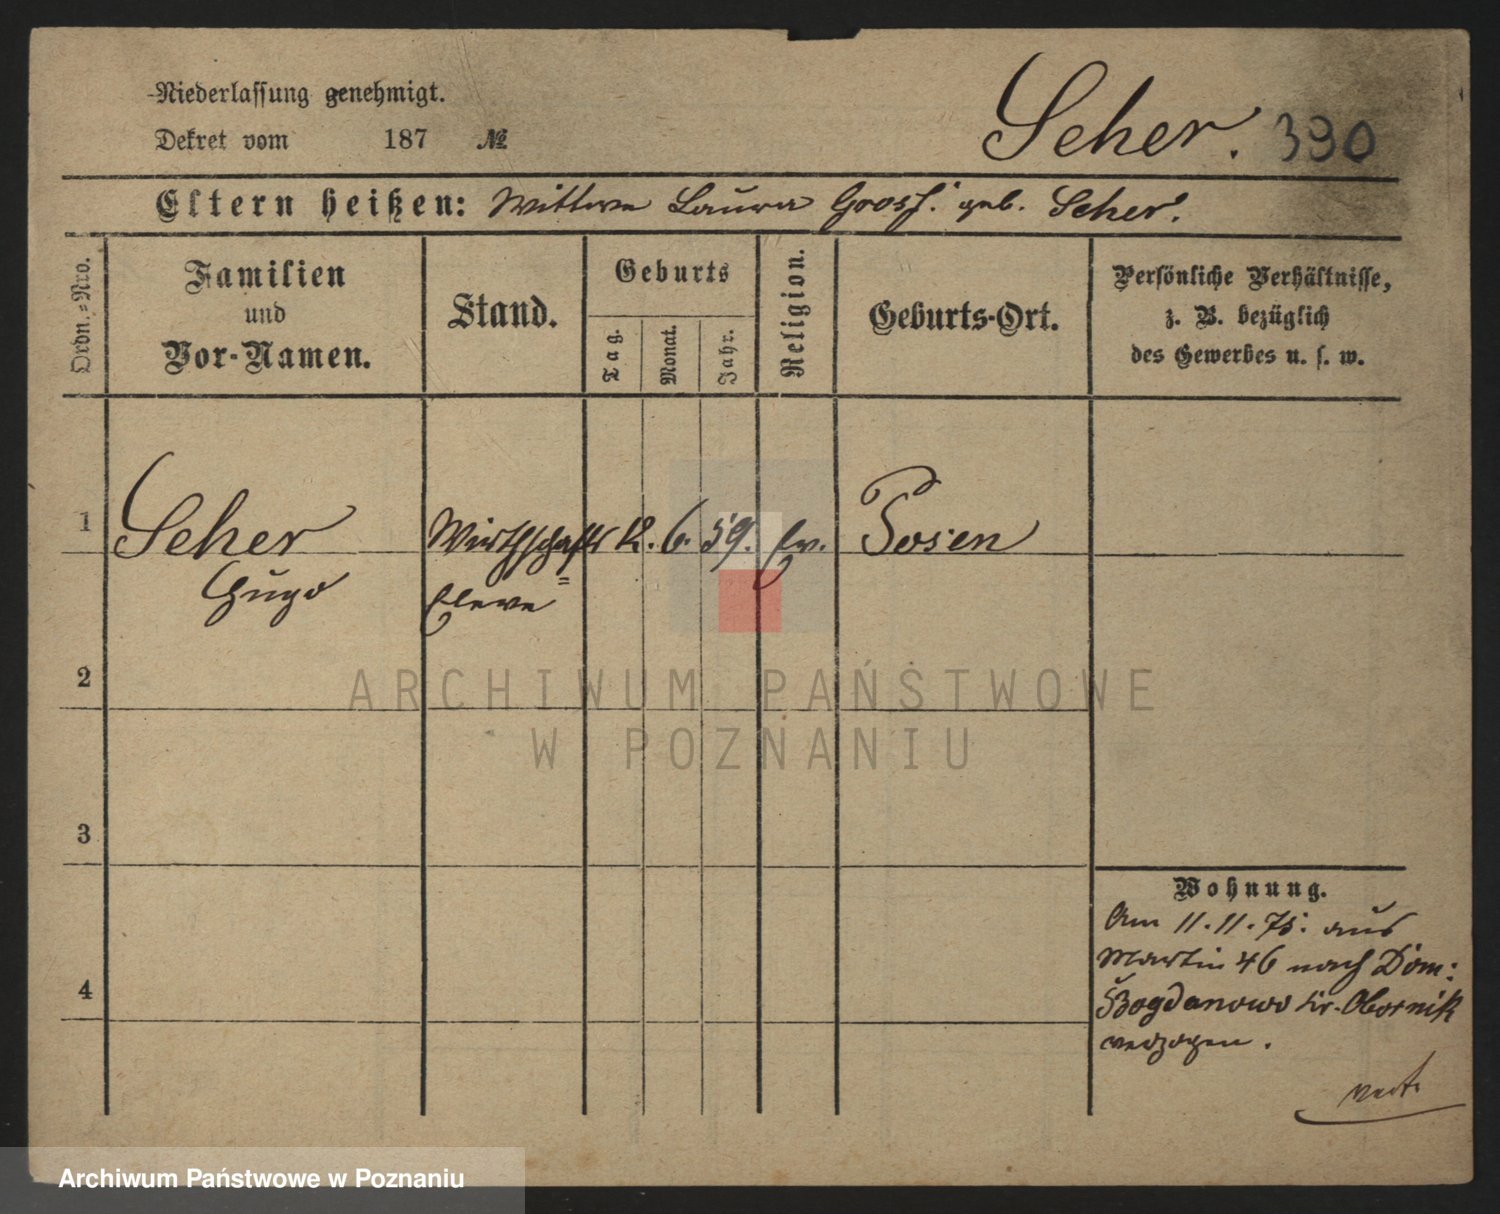 Niederlassung genehmigt.
Dekret vom 187 №
Seher. 390
Eltern heißen: Wittwe Laura Gross. geb. Seher.
Ordn.-Nro.
Familien
und
Vor-Namen.
Stand.
Geburts
Tag.
Monat.
Jahr.
Religion.
Geburts-Ort.
Persönliche Verhältnisse,
z. B. bezüglich
des Gewerbes u. s. w.
1 Seher Wirthschafts 12. 6. 59. Ev. Posen
Hugo Eleve
2
3
4
Wohnung.
Am 11. 11. 75. aus
Martin 46 nach Dom:
Bogdanowo Kr. Obornik
verzogen.
ARCHIWUM PAŃSTWOWE
W POZNANIU
Archiwum Państwowe w Poznaniu